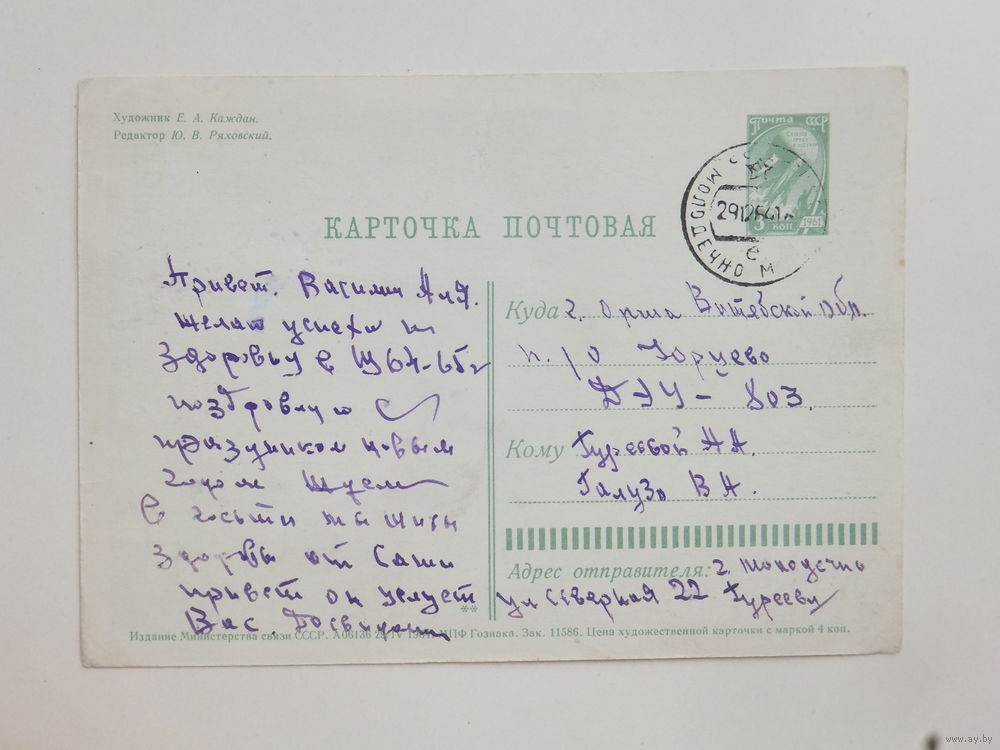 Художник Е. А. Каждан.
Редактор Ю. В. Ряховский.
Почта СССР
3 коп
1961
МОЛОДЕЧНО М
е
КАРТОЧКА ПОЧТОВАЯ
Привет. Василий Аля.
Желаю успеха и
Здоровья в
поздровляю с
праздником новым
годом
В гости мы живы
здоровы от Саши
привет он целует
Вас. Досвидания
Куда г. Орша Витебской Обл.
п/о Юрцево
ДЭУ-803.
Кому Гуреевой А А.
Галузо В А.
Адрес отправителя: г. Молодечно
ул Северная 22 Гуреевы
**
Издание Министерства связи СССР. А06136 МПФ Гознака. Зак. 11586. Цена художественной карточки с маркой 4 коп.
www.ay.by